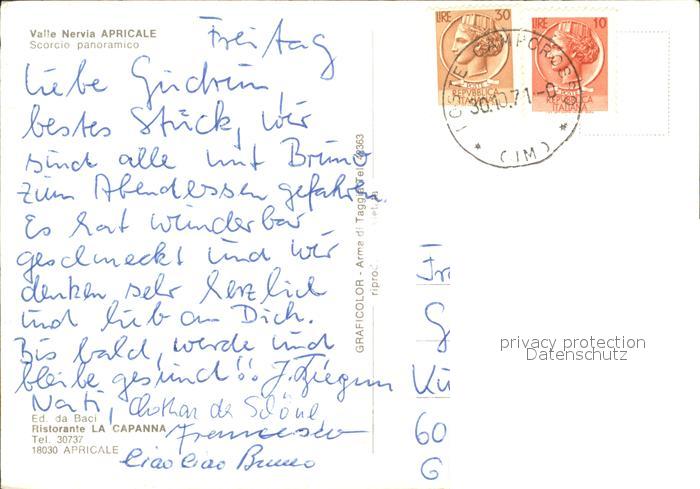 Valle Nervia APRICALE
Scorcio panoramico
Freitag
Liebe Gudrun,
bestes Stück, wir
sind alle mit Bruno
zum Abendessen gefahren.
Es hat wunderbar
geschmeckt und wir
denken sehr herzlich
und lieb an Dich.
Bis bald, werde und
bleibe gesund!!
Lothar de Schöne
Francesco
Ciao Ciao Bruno
Ed. da Baci
Ristorante LA CAPANNA
Tel. 30737
18030 APRICALE
GRAFICOLOR - Arma di Taggia Tel.
riprod.
LIRE 30
REPVBBLICA ITALIANA
LIRE 10
REPVBBLICA ITALIANA
30.10.71
(IM)
60
G
privacy protection
Datenschutz